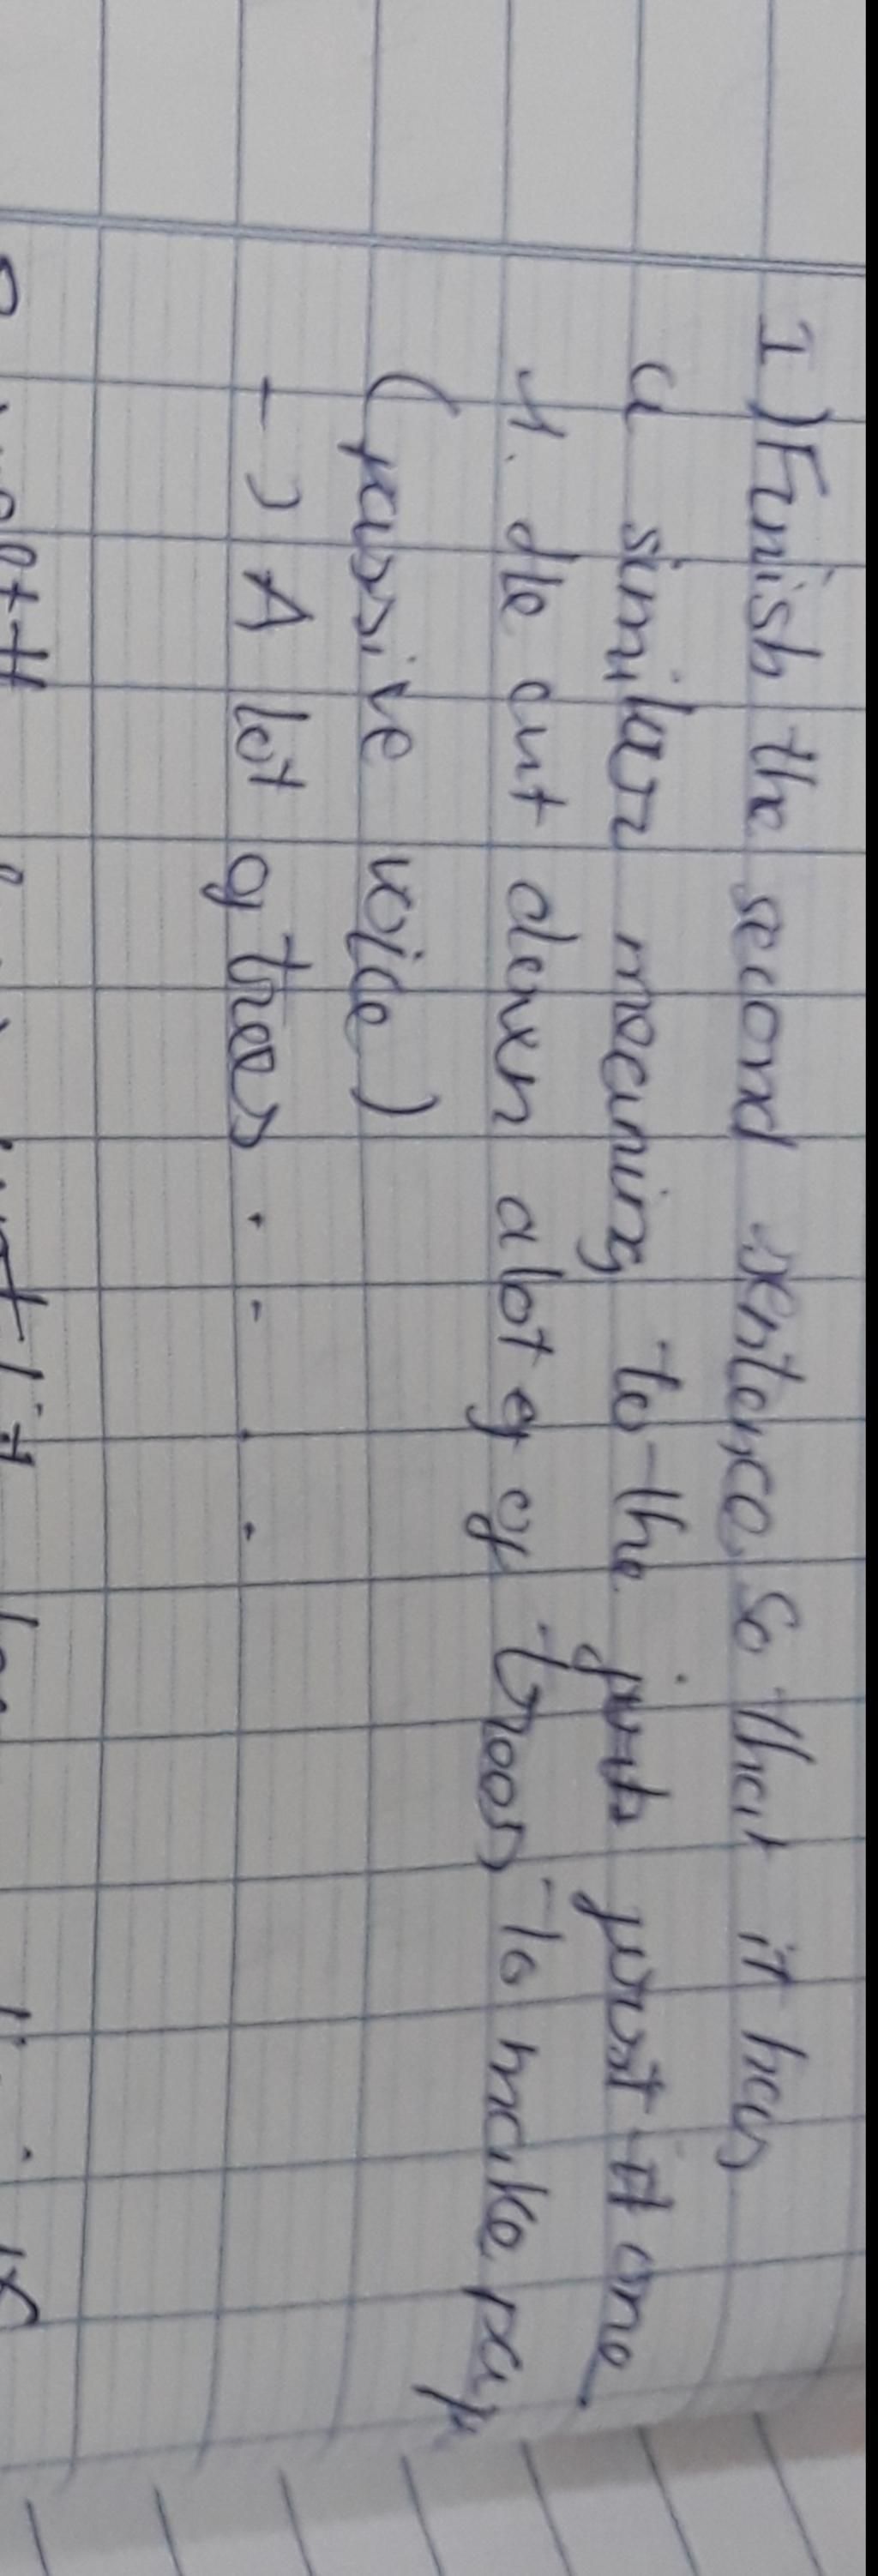 I) Finish the second sentence so that it has
a similar meaning to the first one.
1. He cut down a lot of of trees to make pap
(passive voice)
-> A lot of trees . - . .